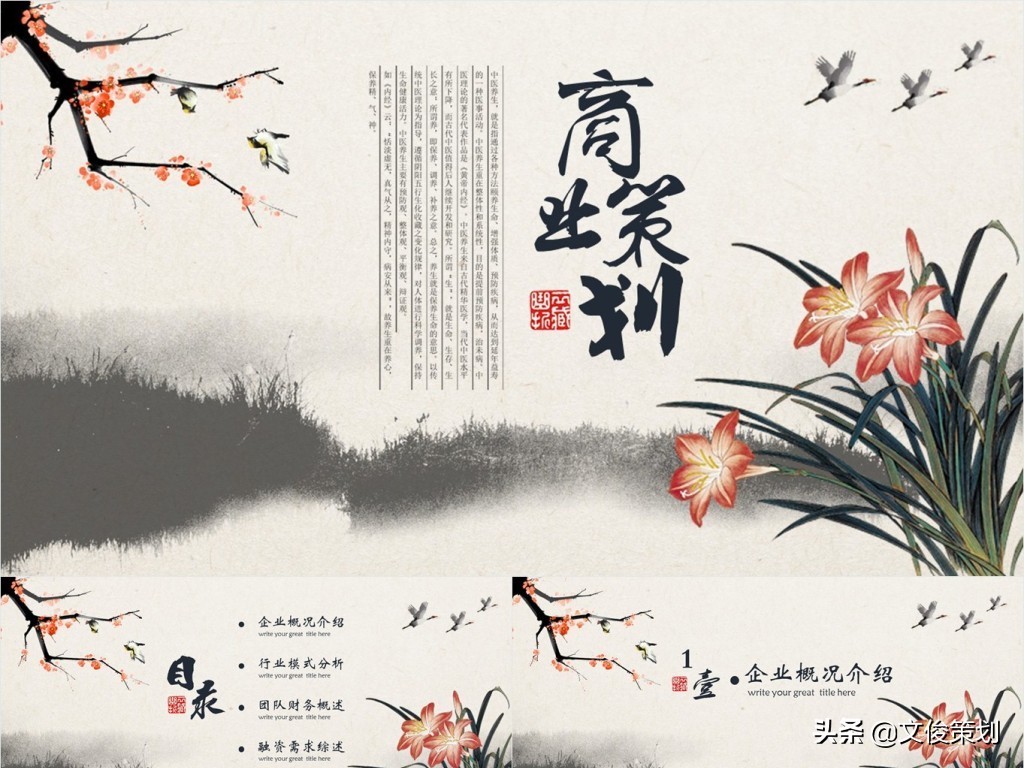 商业策划
中医养生，就是指通过各种方法颐养生命、增强体质、预防疾病，从而达到延年益寿
的一种医事活动。中医养生重在整体性和系统性，目的是提前预防疾病，治未病。中
医理论的著名代表作品是《黄帝内经》。中医养生来自古代精华医学，当代中医水平
有所下降，而古代中医值得后人继续开发和研究。所谓“生”，就是生命、生存、生
长之意；所谓养，即保养、调养、补养之意。总之，养生就是保养生命的意思。以传
统中医理论为指导，遵循阴阳五行生化收藏之变化规律，对人体进行科学调养，保持
生命健康活力。中医养生主要有预防观、整体观、平衡观、辩证观。
如《内经》云：“恬淡虚无，真气从之，精神内守，病安从来”，故养生重在养心，
保养精、气、神。
目录
企业概况介绍
write your great title here
行业模式分析
write your great title here
团队财务概述
write your great title here
融资需求综述
write your great title here
1
壹
企业概况介绍
write your great title here
头条 @文俊策划